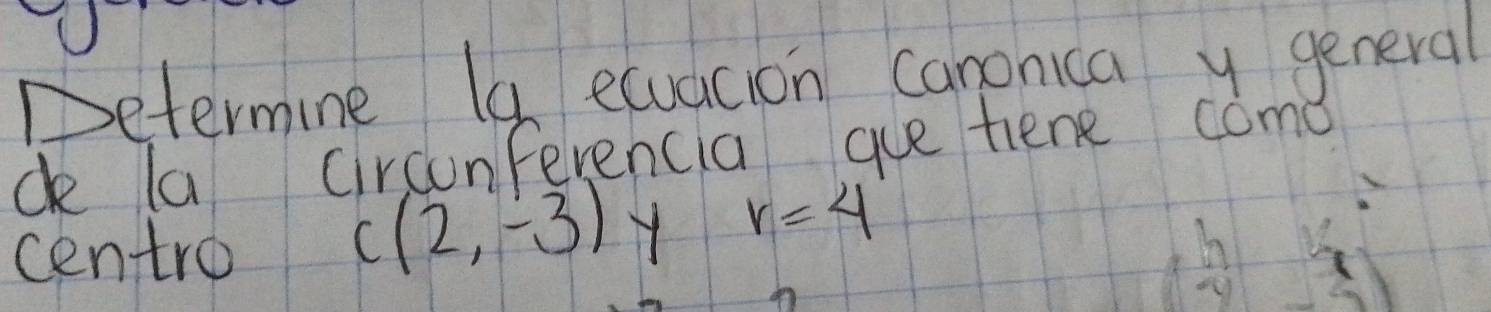 Determine la ecuación canonica y general
de la circunferencia que tiene como
centro C(2,-3) y r=4